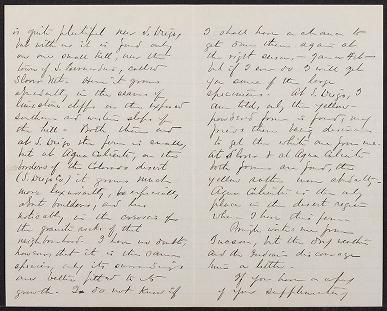 is quite plentiful near S. Diego,
but with us it is found only
on one small hill, near the
town of S. Bernardino, called
Slover Mt. Here it grows
sparsely, in the seams of
limestone cliffs on the exposed
southern and western slopes of
the hill. Both there and
at S. Diego the fern is small,
but at Agua Caliente, on the
borders of the Colorado desert
(S. Diego Co.) it grows much
more luxuriantly, especially
about boulders, and
in the crevices of
the granite rocks of that
neighborhood. I have no doubt,
however, that it is the same
species, only its surroundings
are better fitted to its
growth. I do not know if
I shall have a chance to
get some there again at
the right season, - Jan or Feb -
but if I can do I will get
you some of the large
specimens. At S. Diego, I
am told, only the yellow-
powdered form is found, my
friends there being desirous
to get the white one from me.
At Slover & at Agua Caliente
both forms are found, the
yellow rather more abundantly.
Agua Caliente is the only
place in the desert region
where I have this fern.
Pringle writes me from
Tucson, but the dry weather
and the Indians discourage
him a little.
If you have a copy
of your supplementary